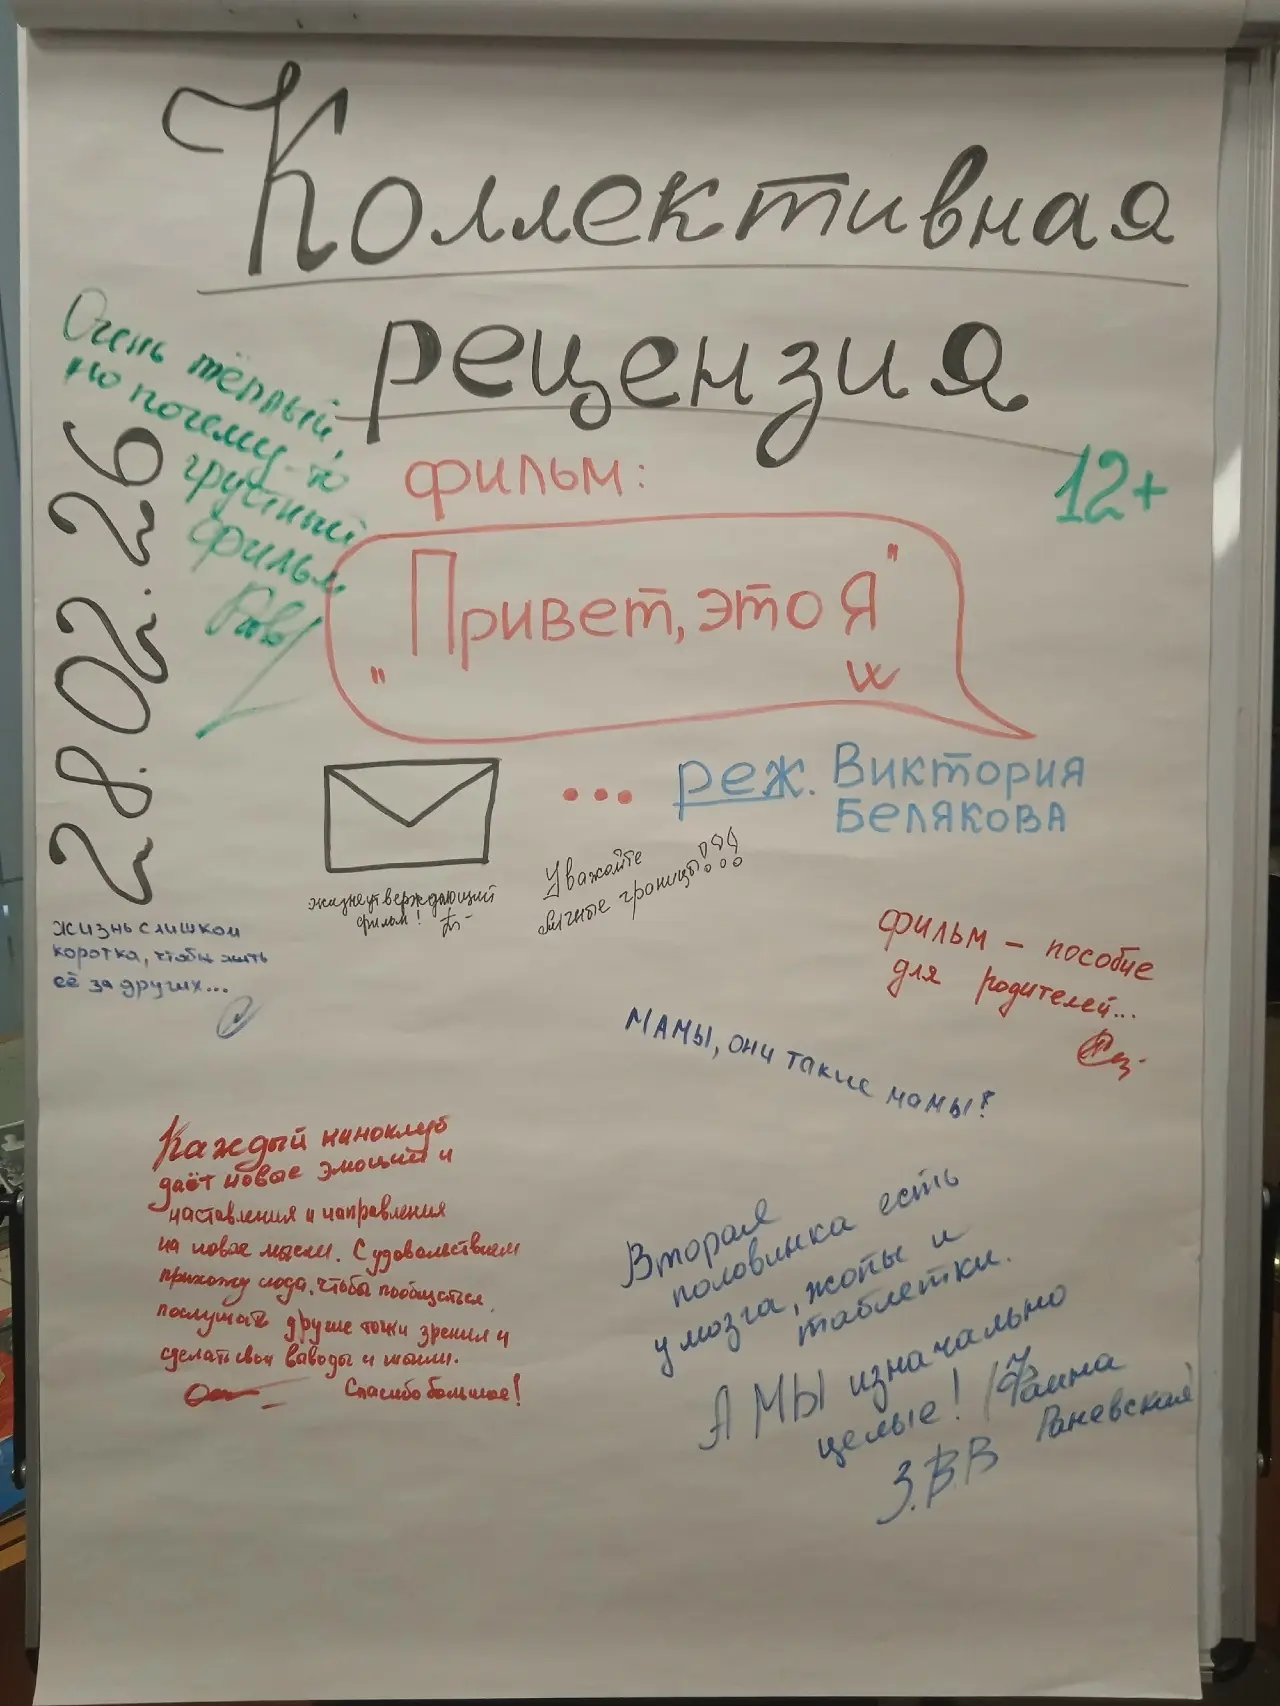 Коллективная
рецензия
28.02.26
Очень тёплый,
но почему-то
грустный
фильм
фильм:
12+
"Привет, это Я"
... реж. Виктория
Белякова
жизнеутверждающий
фильм!
Уважайте
личные границы!!!
жизнь слишком
коротка, чтобы жить
её за других...
фильм – пособие
для родителей...
МАМЫ, они такие мамы!
Каждый киноклуб
даёт новые эмоции и
наставления и направления
на новые мысли. С удовольствием
прихожу сюда, чтобы пообщаться,
послушать другие точки зрения и
сделать свои выводы и мысли.
Спасибо большое!
Вторая
половинка есть
у мозга, жопы и
таблетки.
А МЫ изначально
целые! Фаина
Раневская
З.В.В